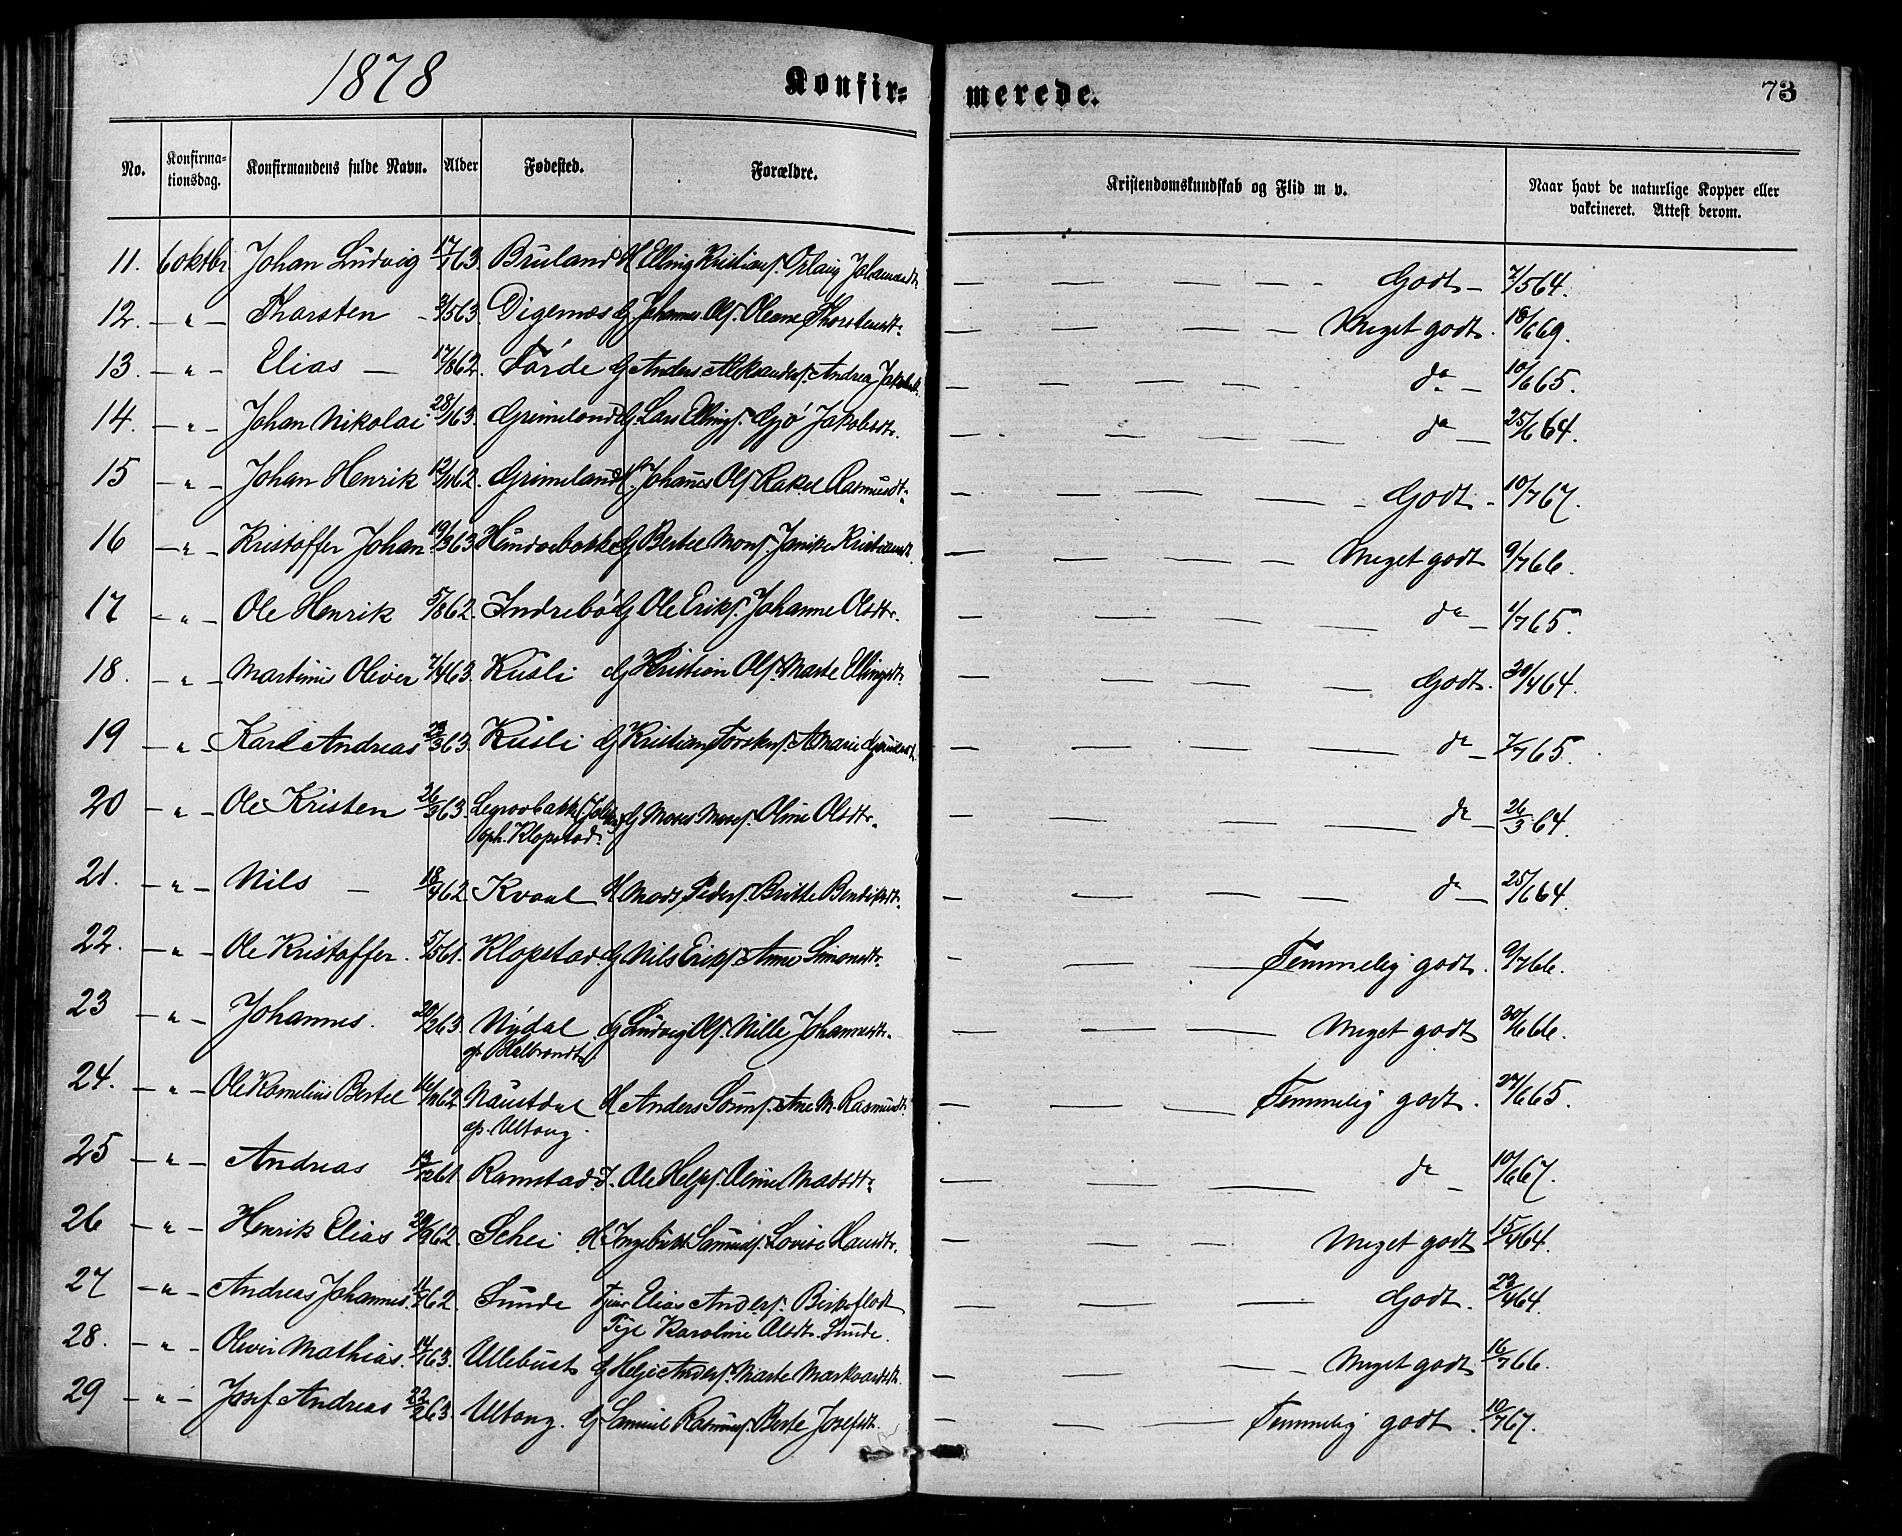 1878 Konfir= merede. 73
No. Konfirma-tionsdag. Konfirmandens fulde Navn. Alder Fødested. Forældre. Kristendomskundskab og Flid m v. Naar havt de naturlige Kopper eller vakcineret. Attest derom.
11. 6 oktbr. Johan Ludvig 17/7 63. Bruland H Elling Kristians. Orlaug Johannesdt. — — — — Godt — 7/5 64.
12. — " — Thorsten — 3/5 63. Digernæs G. Johannes Ols. Oleane Thorstensdt. — — — — Meget godt. 18/6 69.
13. — " — Elias — 17/8 62. Förde G Anders Aleksanders. Andrea Jakobsdt. — — — — do — 10/6 65.
14. — " — Johan Nikolai. 28/1 63. Grimeland G Lars Ellings. Gjø Jakobsdtr. — — — — do — 25/6 64.
15 — " — Johan Henrik 12/10 62. Grimeland H. Johanes Ols. Rakel Rasmusdtr. — — — — Godt — 10/7 67.
16 — " — Kristoffer Johan 19/3 63 Hundvebakke G Bertel Mons. Janike Kristensdt. — — — — Meget godt 9/7 66.
17 — " — Ole Henrik 5/8 62. Indrebö G Ole Eriks. Johanne Olsdtr. — — — — do — 1/7 65.
18. — " — Martinus Oliver 7/4 63. Kusli G Kristian Ols. Marte Ellingsdt. — — — — Godt. 30/4 64.
19 — " — Karl Andreas 29/3 63. Kusli G Kristian Torstens. A Marie Gjertsdt. — — — — do — 7/7 65.
20 — " — Ole Kristen 26/3 63. G Moses Moses. Oline Olsdtr. — — — — do — 26/3 64.
oph. Klopstad.
21. — " — Nils — 18/9 62. Kvaal H Mads Peders. Britte Bendiksdt. — — — — do — 25/6 64.
22. — " — Ole Kristoffer. 5/5 61. Klopstad G Nils Eriks. Anne Simonsdt. — — — Temmelig godt. 9/7 66.
23 — " — Johannes. 20/2 63 Nydal G Ludvig Ols. Nille Johannesdtr. — — — Meget godt 30/6 66.
op. Halbrendt
24. — " — Ole Kornelius Bertel 16/10 62 Naustdal H Anders Sørens. Ane M. Rasmusdt. — — — Temmelig godt. 27/6 65.
op. Ultang.
25 — " — Andreas 13/12 61. Ramstad I. Ole Helges. Oline Madsdtr. — — — do — 10/6 67.
26 — " — Henrik Elias 29/9 62. Schei H Ingebrikt Samuels. Lovise Hansdtr. — — — Meget godt 15/4 64.
27 — " — Andreas Johannes. 11/9 62. Sunde Tjener Elias Anders. Birkeflodt — — — Godt. 23/4 64.
Pige Karoline Olsdtr. Sunde.
28. — " — Oliver Mathias. 14/1 63. Ullebust G Helge Anders. Marte Markvardsdt. — — — Meget godt 16/7 66.
29 — " — Josef Andreas 22/2 63. Ultang. G Samuel Rasmus. Berte Josefsdt. — — — Temmelig godt. 10/7 67.